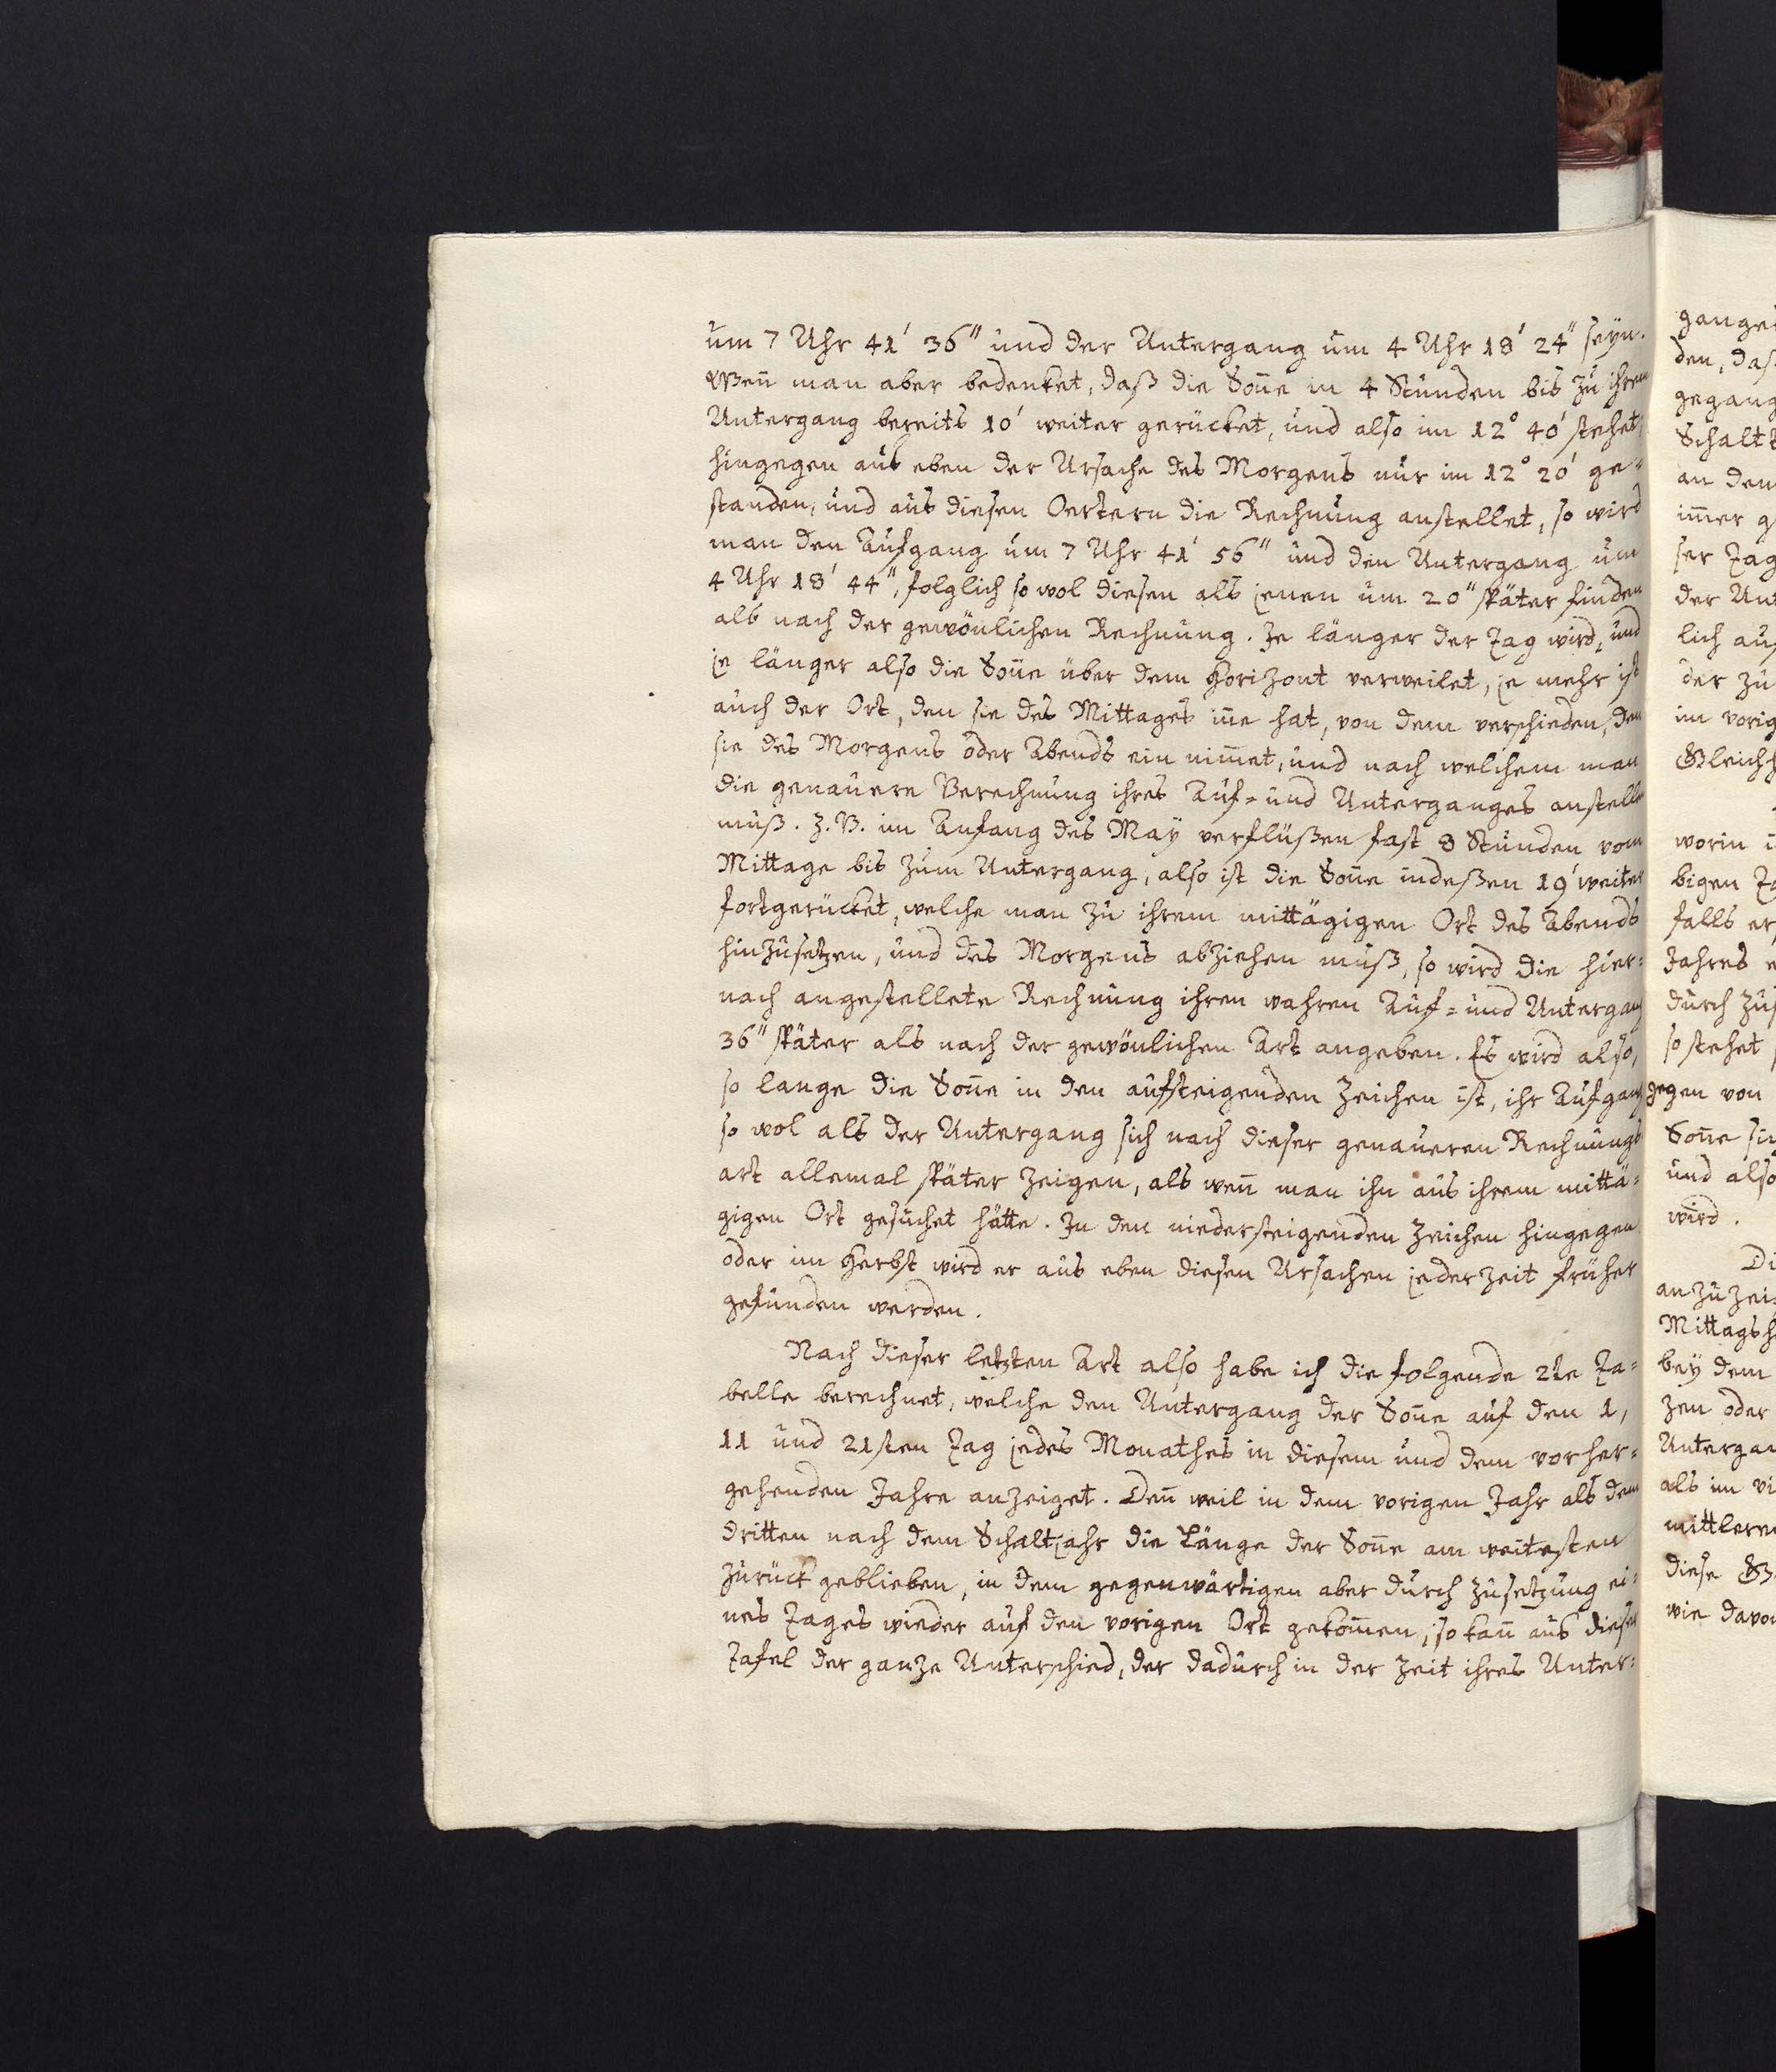 um 7 Uhr 41′ 36″ und der Untergang um 4 Uhr 18′ 24″ seyn.
Weñ man aber bedenket, daß die Soñe in 4 Stunden bis zu ihrem
Untergang bereits 10′ weiter gerücket, und also im 12° 40′ stehet,
hingegen aus eben der Ursache des Morgens nur im 12° 20′ ge-
standen, und aus diesen Oertern die Rechnung anstellet, so wird
man den Aufgang um 7 Uhr 41′ 56″ und den Untergang um
4 Uhr 18′ 44″, folglich so wol diesen als jenen um 20″ später finden
als nach der gewönlichen Rechnung. Je länger der Tag wird, und
je länger also die Soñe über dem Horizont verweilet, je mehr ist
auch der Ort, den sie des Mittages iñe hat, von dem verschieden, den
sie des Morgens oder Abends ein nim̃et, und nach welchem man
die genauere Berechnung ihres Auf- und Unterganges anstellen
muß. Z. B. im Anfang des May verflüßen fast 8 Stunden vom
Mittage bis zum Untergang, also ist die Soñe indeßen 19′ weiter
fortgerücket, welche man zu ihrem mittägigen Ort des Abends
hinzusetzen, und des Morgens abziehen muß, so wird die hier-
nach angestellete Rechnung ihren wahren Auf- und Untergang
36″ später als nach der gewönlichen Art angeben. Es wird also,
so lange die Soñe in den aufsteigenden Zeichen ist, ihr Aufgang
so wol als der Untergang sich nach dieser genaueren Rechnungs
art allemal später zeigen, als weñ man ihn aus ihrem mittä-
gigen Ort gesuchet hätte. In den niedersteigenden Zeichen hingegen
oder im Herbst wird er aus eben diesen Ursachen jederzeit früher
gefunden werden.
Nach dieser letzten Art also habe ich die folgende 2te Ta-
belle berechnet, welche den Untergang der Soñe auf den 1,
11 und 21sten Tag jedes Monathes in diesem und dem vorher-
gehenden Jahre anzeiget. Deñ weil in dem vorigen Jahr als dem
dritten nach dem Schaltjahr die Länge der Soñe am weitesten
zurück geblieben, in dem gegenwärtigen aber durch Zusetzung ei-
nes Tages wieder auf den vorigen Ort gekom̃en, so kañ aus dieser
Tafel der ganze Unterschied, der dadurch in der Zeit ihres Unter-
den, daß
gegang
Schalt
an dem
im̃er g
ser Tag
der Unt
lich auf
der zu
im vorig
Gleich
worin
bigen Ta
falls er
Jahres
durch Zus
so stehet
gegen von
Soñe
und also
wird.
Di
anzuzei-
Mittagsh
bey dem
zen oder
Untergan
als im vi
mittleren
diese G
wie davon